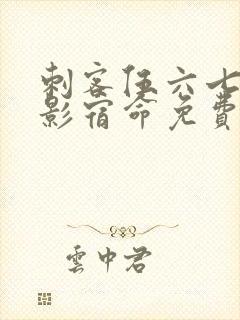 刺客伍六七
影宿命免费
雲中君